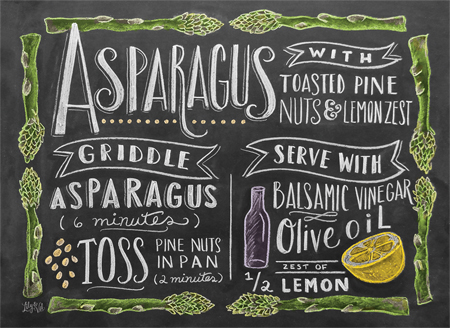 ASPARAGUS
WITH
TOASTED PINE
NUTS & LEMON ZEST
GRIDDLE
ASPARAGUS
(6 minutes)
TOSS PINE NUTS
IN PAN
(2 minutes)
SERVE WITH
BALSAMIC VINEGAR
Olive OIL
ZEST OF
1/2 LEMON